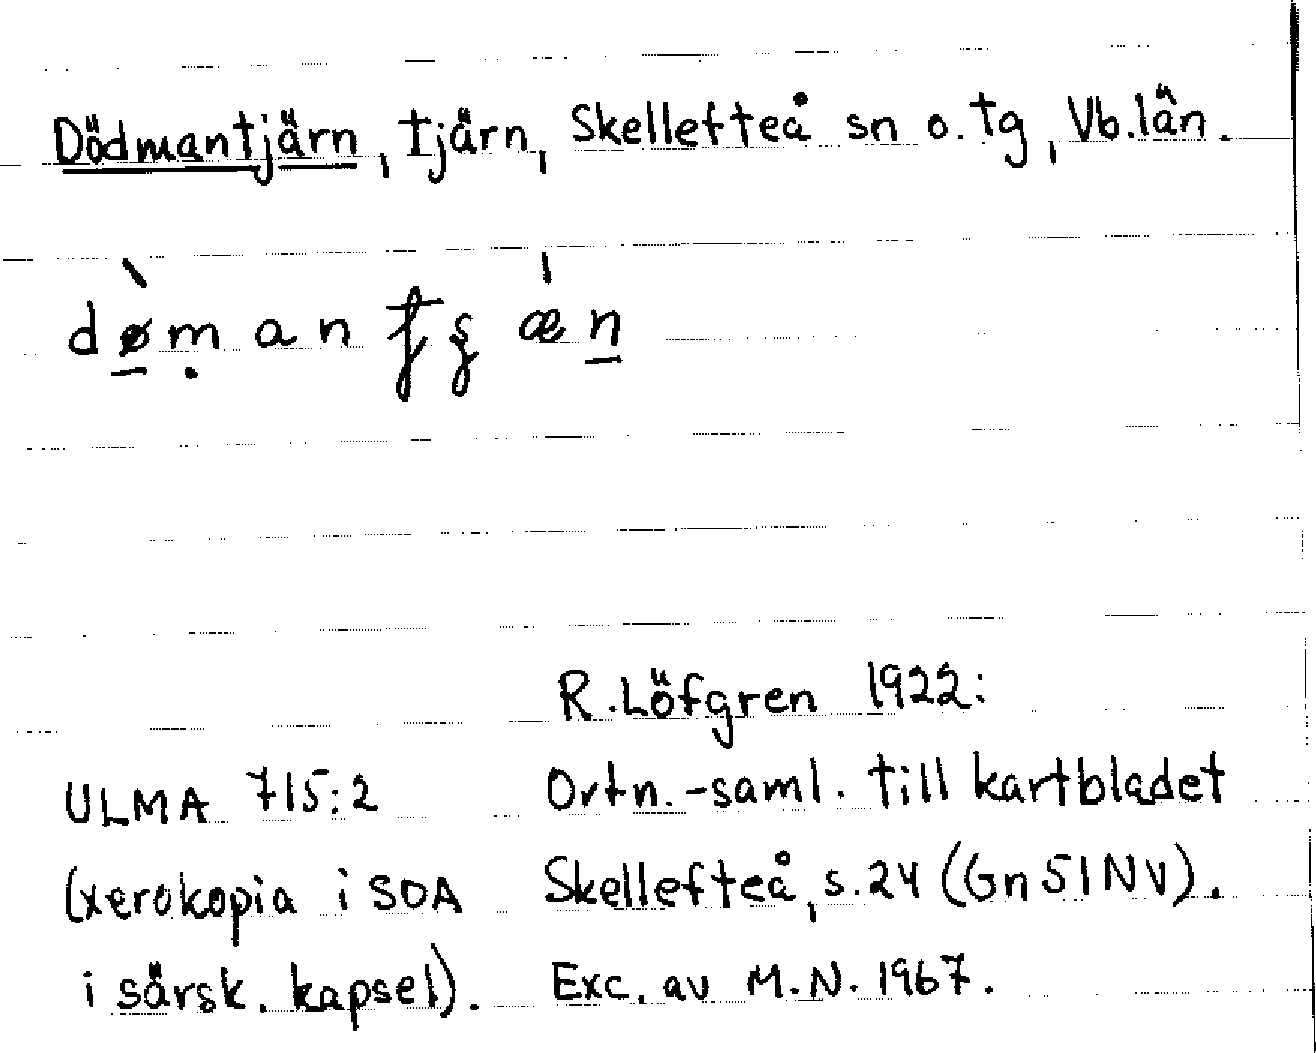 Dödmantjärn, tjärn, Skellefteå sn o. tg, Vb. län.
R. Löfgren 1922:
ULMA 715:2 Ortn.-saml. till kartbladet
(xerokopia i SOA Skellefteå, s. 24 (Gn 51 NV).
i särsk. kapsel). Exc. av M.N. 1967.